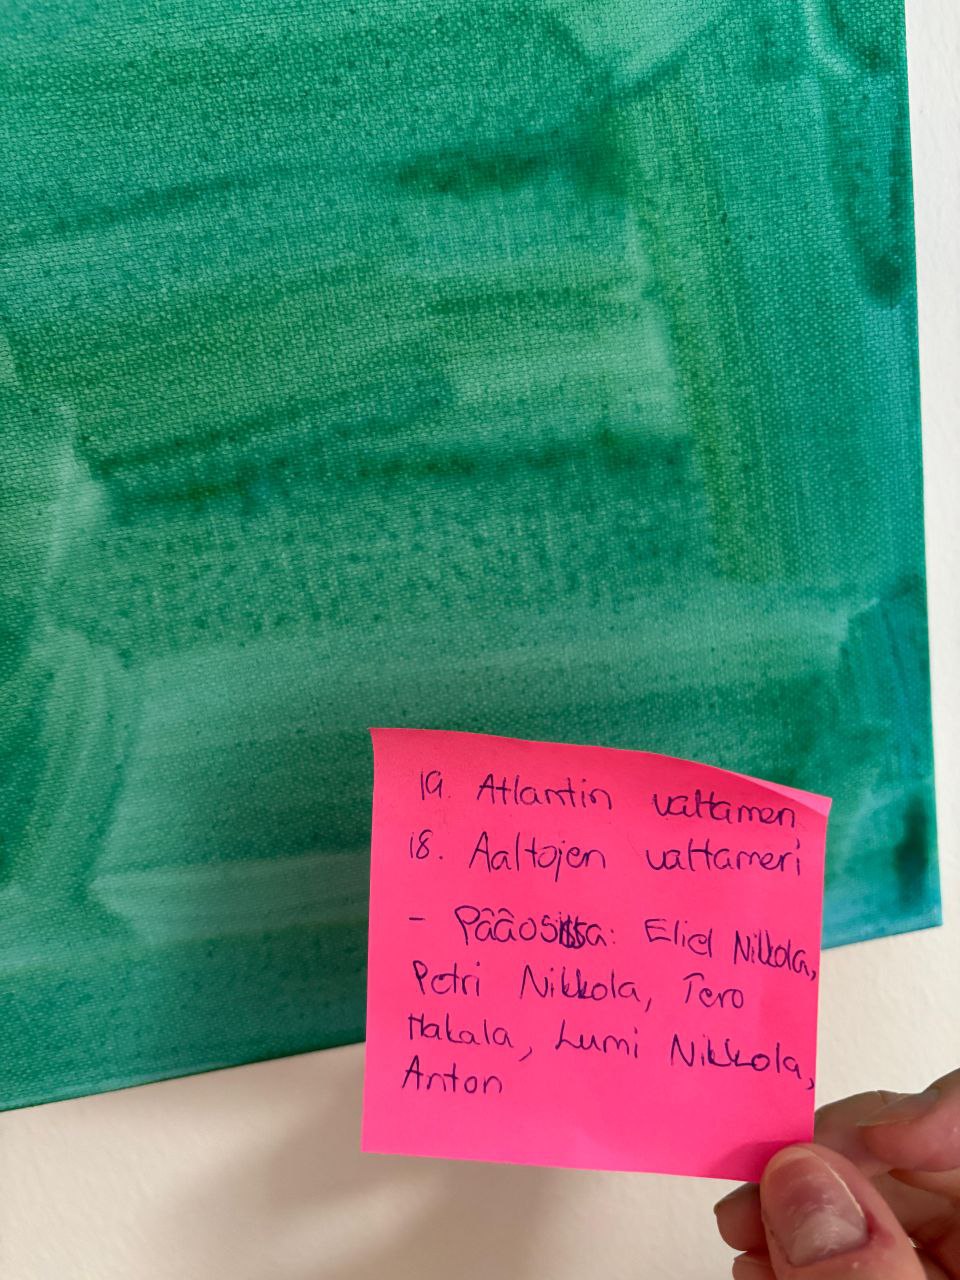 19. Atlantin valtameri
18. Aaltojen valtameri
- Pääosissa: Eliel Nikkola,
Petri Nikkola, Tero
Hakala, Lumi Nikkola,
Anton